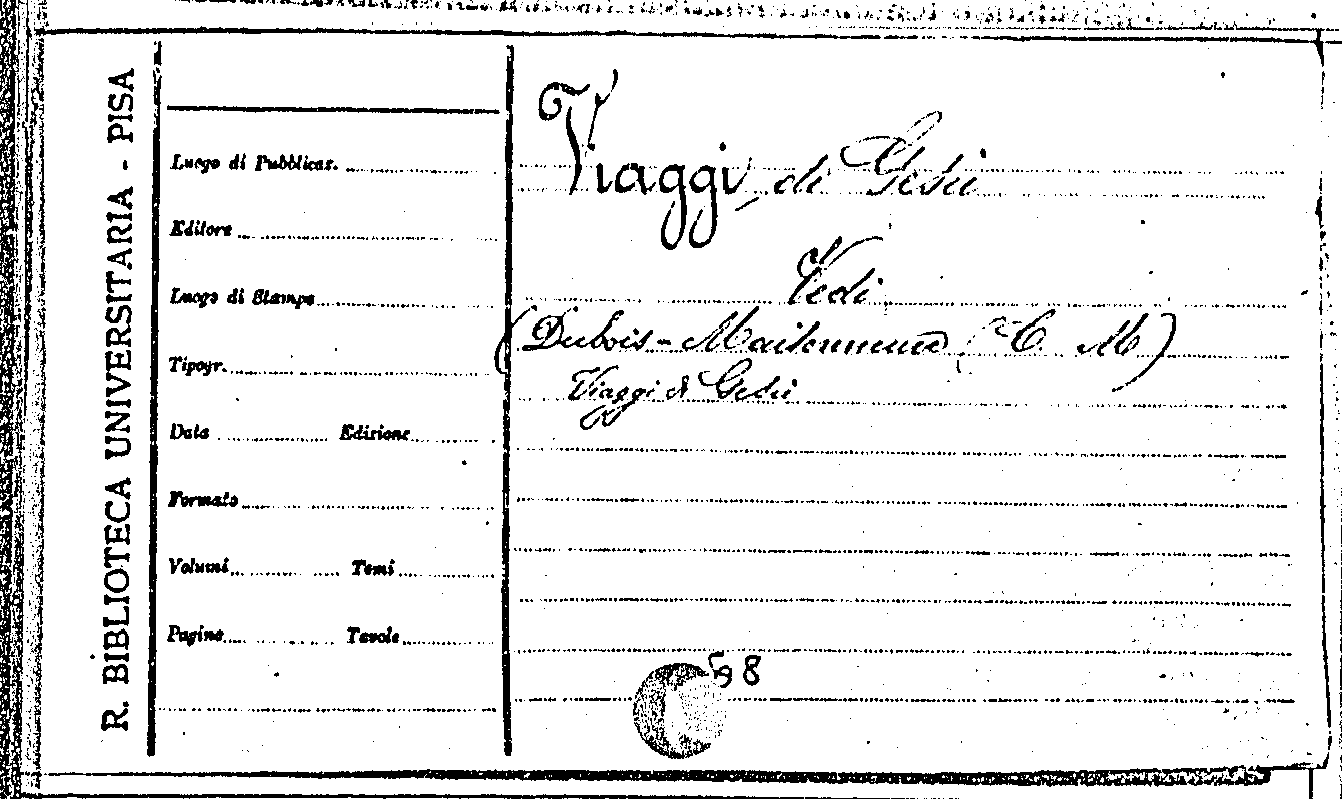 R. BIBLIOTECA UNIVERSITARIA - PISA
Luogo di Pubblicaz.
Editore
Luogo di Stampa
Tipogr.
Data Edizione
Formato
Volumi Tomi
Pagine Tavole
Viaggi di Gesù
Vedi
(Dubois-Maisonneuve (C. M)
Viaggi di Gesù
58